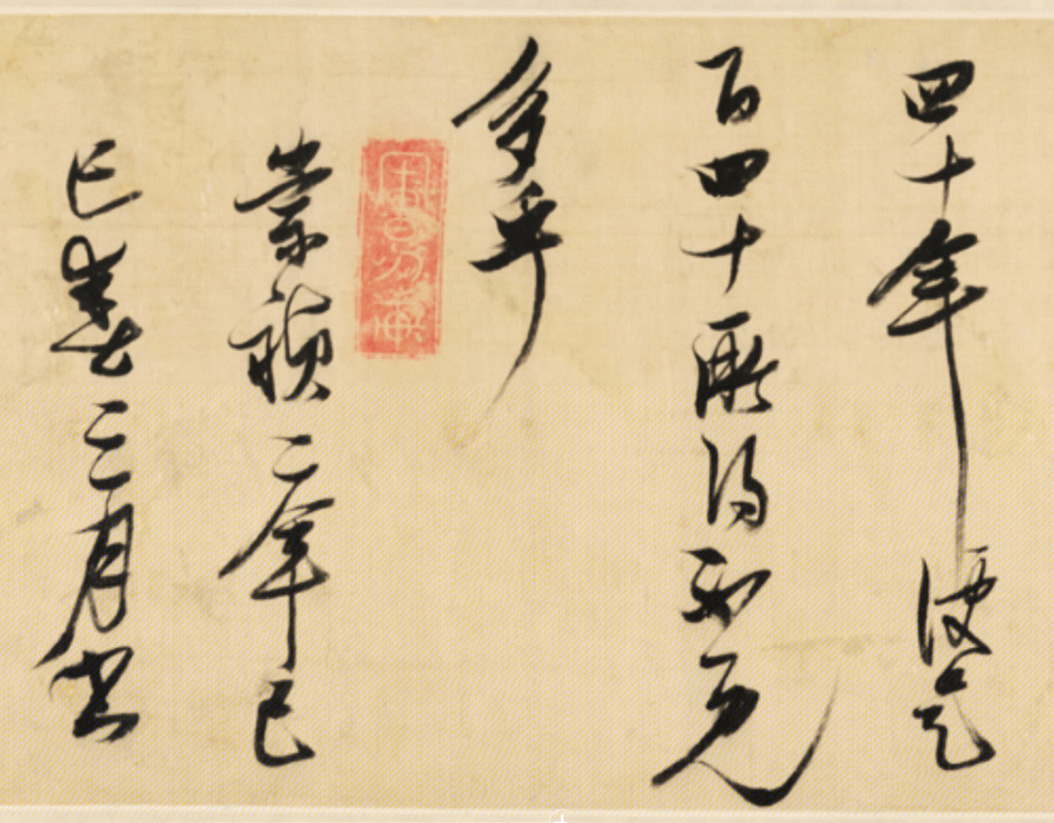 四十年便是
百四十所得不
多乎
崇禎二年己
巳春三月書